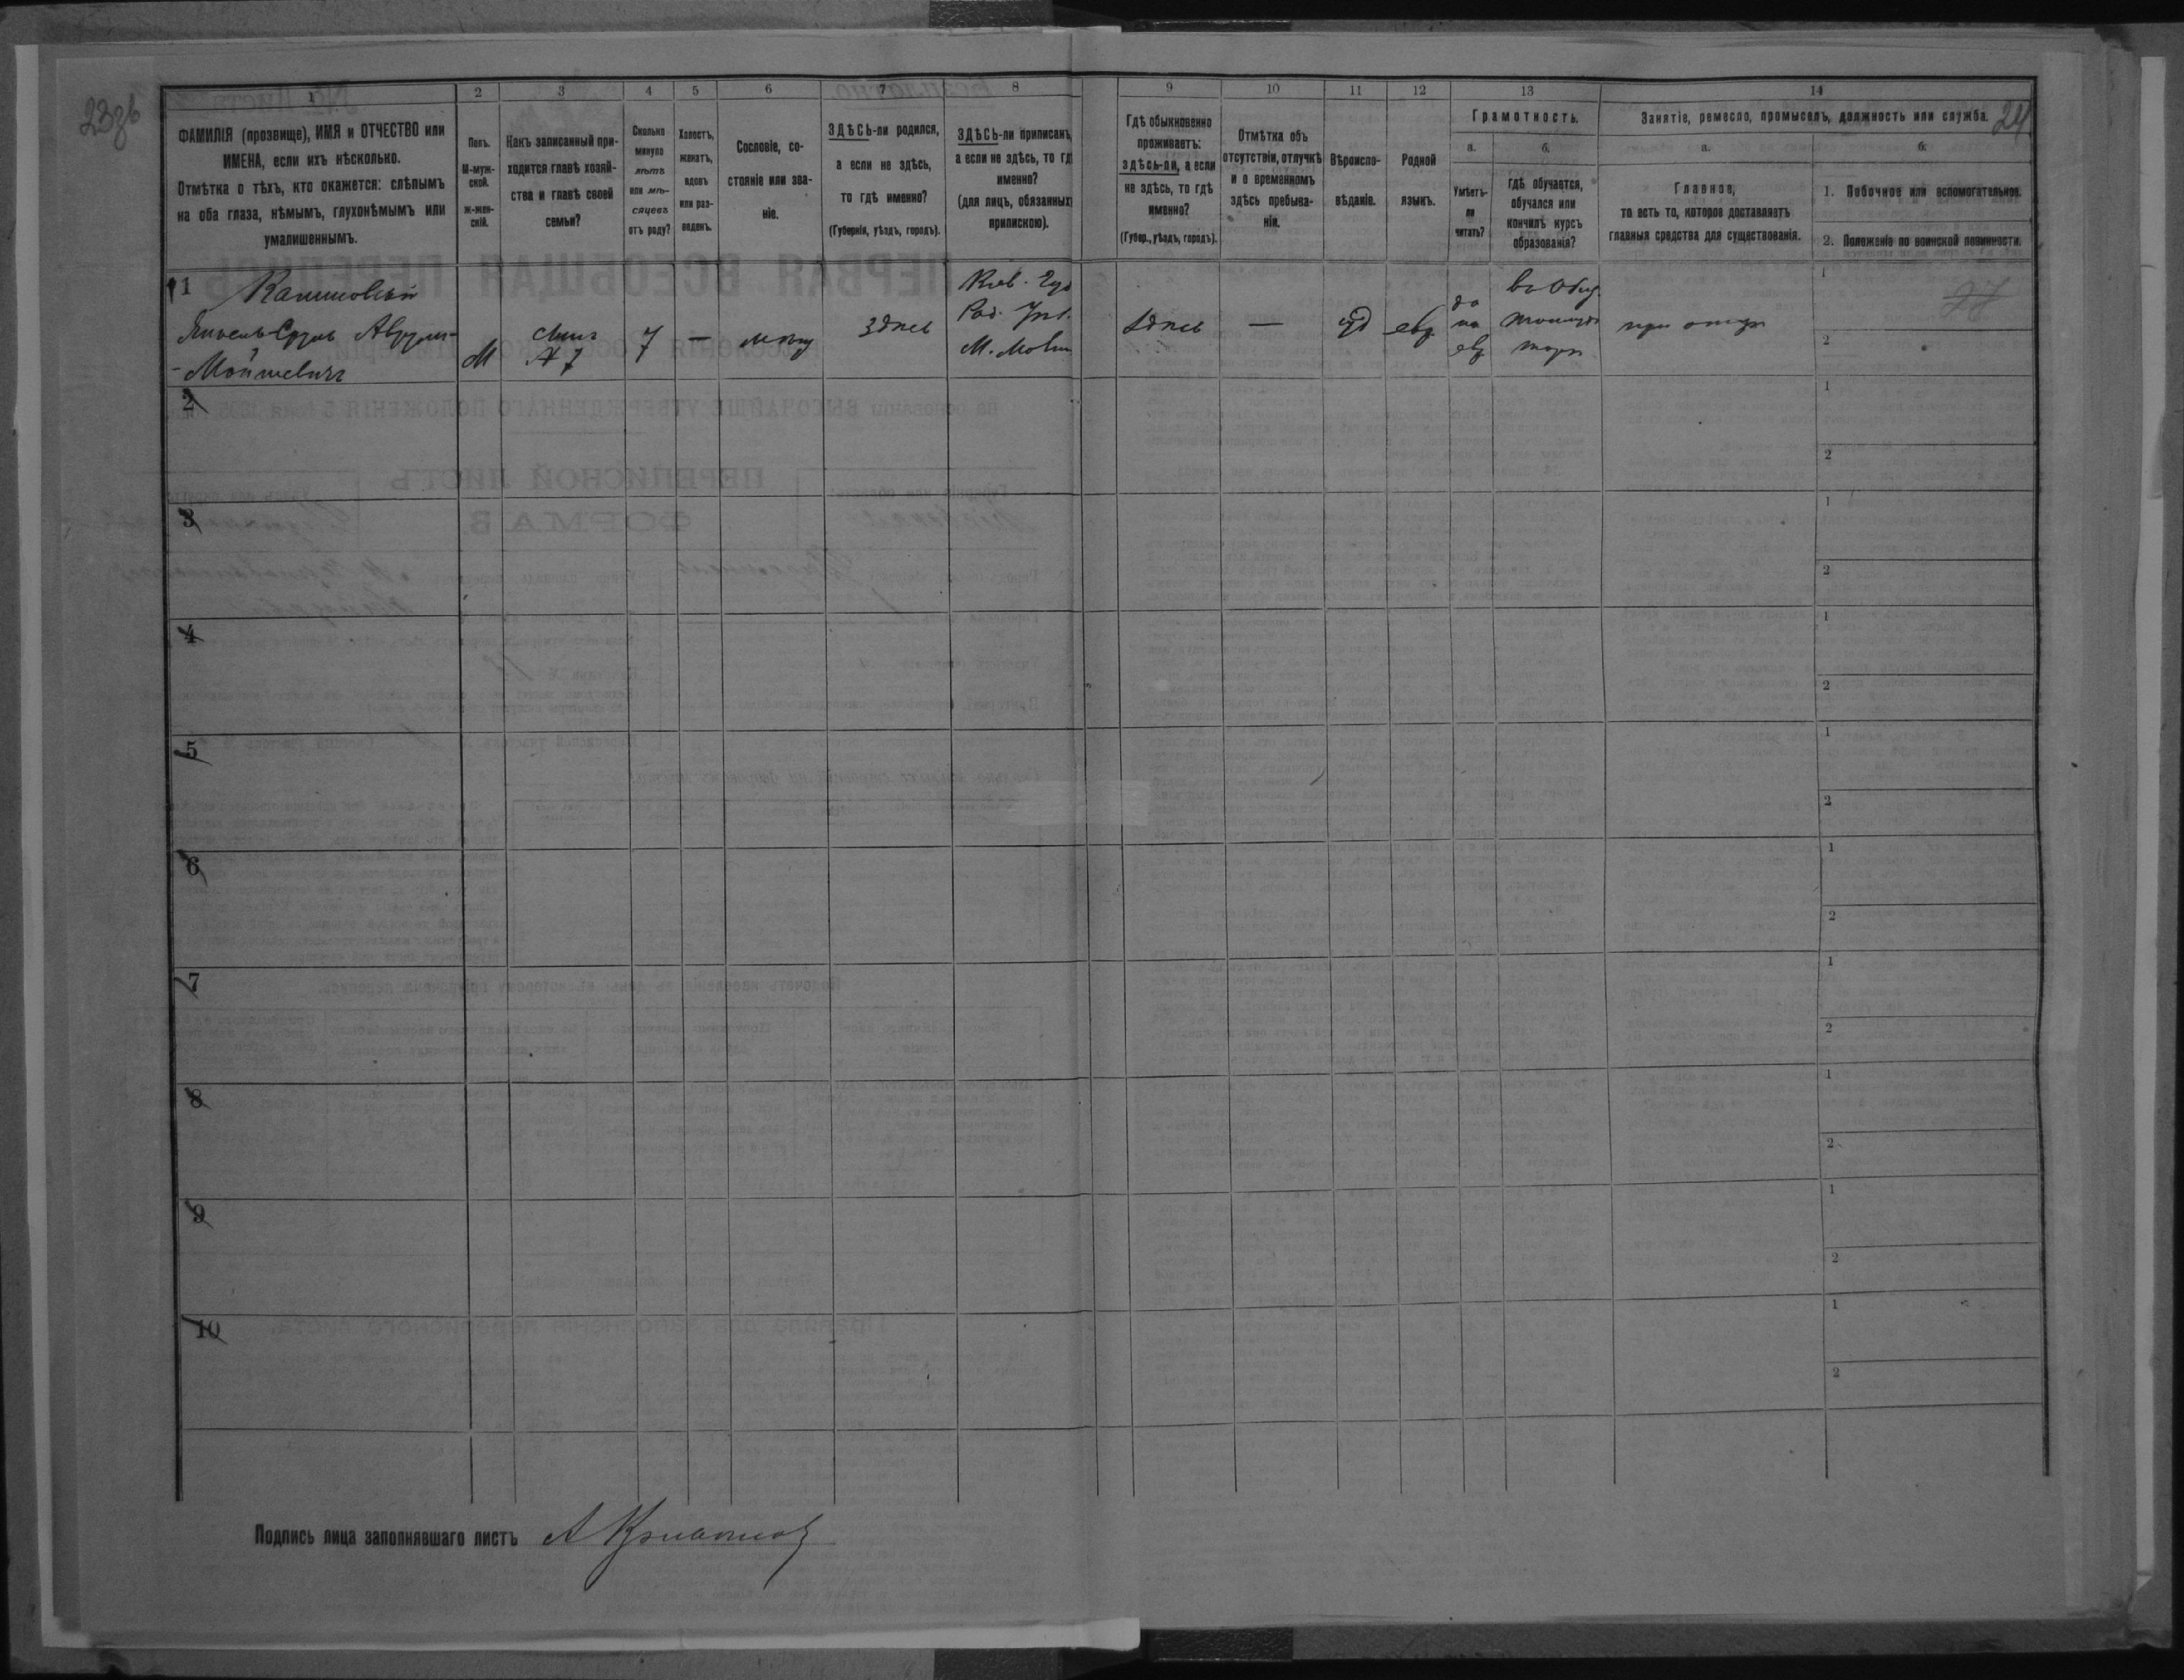 23об
24
1 2 3 4 5 6 7 8 9 10 11 12 13 14
ФАМИЛІЯ (прозвище), ИМЯ и ОТЧЕСТВО или
ИМЕНА, если ихъ нѣсколько.
Отмѣтка о тѣхъ, кто окажется: слѣпымъ
на оба глаза, нѣмымъ, глухонѣмымъ или
умалишеннымъ.
Полъ.
М-муж-
ской.
ж-жен-
скій.
Какъ записанный при-
ходится главѣ хозяй-
ства и главѣ своей
семьи?
Сколько
минуло
лѣтъ
или мѣ-
сяцевъ
отъ роду?
Холостъ,
женатъ,
вдовъ
или раз-
веденъ.
Сословіе, со-
стояніе или зва-
ніе.
ЗДѢСЬ-ли родился,
а если не здѣсь,
то гдѣ именно?
(Губернія, уѣздъ, городъ).
ЗДѢСЬ-ли приписанъ,
а если не здѣсь, то гд
именно?
(для лицъ, обязанныхъ
припискою).
Гдѣ обыкновенно
проживаетъ:
здѣсь-ли, а если
не здѣсь, то гдѣ
именно?
(Губер., уѣздъ, городъ).
Отмѣтка объ
отсутствіи, отлучкѣ
и о временномъ
здѣсь пребыва-
ніи.
Вѣроиспо-
вѣданіе.
Родной
языкъ.
Грамотность.
а.
Умѣетъ-
ли
читать?
б.
гдѣ обучается,
обучался или
кончилъ курсъ
образованія?
Занятіе, ремесло, промыселъ, должность или служба.
а.
Главное,
то есть то, которое доставляетъ
главныя средства для существованія.
б.
1. Побочное или вспомогательное.
2. Положеніе по воинской повинности.
1
Мойшевичъ
М
сынъ
№ 7
7
—
здѣсь
Кіев. Губ
Рад. Уѣз.
здѣсь
—
іуд
евр
да
по
евр
въ Общ.
Талмудъ
торѣ
при отцѣ
1
2
2
1
2
3
1
2
4
1
2
5
1
2
6
1
2
7
1
2
8
1
2
9
1
2
10
1
2
Подпись лица заполнявшаго листъ